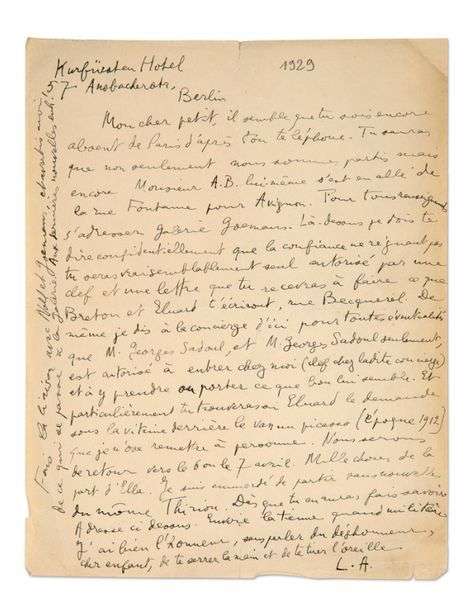 Kurfürsten Hotel
1929
7 Ansbacherstr.
Berlin
Mon cher petit, il semble que tu sois encore
absent de Paris d'après ton téléphone. Tu sauras
que non seulement nous sommes partis mais
encore Monsieur A.B. lui-même s'en est allé de
la rue Fontaine pour Avignon. Pour tous
s'adresser Galerie Goemans. Là-dessus je dois te
dire confidentiellement que la confiance ne régnant pas
tu seras vraisemblablement seul autorisé par une
clef et une lettre que tu recevras à faire ce que
Breton et Eluard t'écriront, rue Becquerel. De
même je dis à la concierge d'ici pour toutes éventualités
que M. Georges Sadoul, et M. Georges Sadoul seulement,
est autorisé à entrer chez moi (clef chez ladite concierge)
et à y prendre ou porter ce que bon lui semble. Et
particulièrement tu trouveras on Eluard le demande
sous la vitrine derrière le vase un picasso (époque 1912)
que je n'ose remettre à personne. Nous serons
de retour vers le 6 ou le 7 avril. Mille choses de la
part d'Elle. Je suis emmerdé de partir sans nouvelle
du môme Thirion. Dès que tu en auras fais savoir
Adresse ci dessus. Envoie la tienne quand militaire
J'ai bien l'honneur, sans parler du déshonneur,
cher enfant, de te serrer la main et de te tirer l'oreille
L.A.
Fais la liaison avec Goemans,
de ce qui se passe à la Galerie. Aux dernières nouvelles